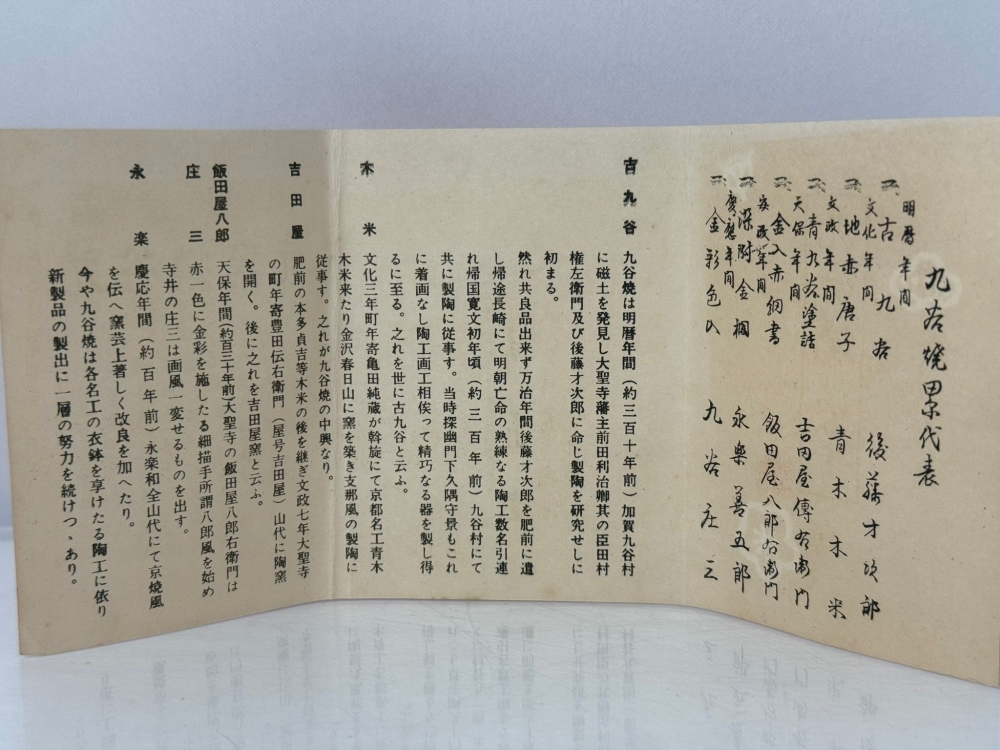 九谷焼累代表
明暦年間
古九谷 後藤才次郎
文化年間
地赤唐子 青木木米
文政年間
青九谷塗詰 吉田屋傳右衛門
天保年間
金入赤細書 飯田屋八郎右衛門
安政年間
深附金襴 永楽善五郎
慶應年間
金彩色入 九谷庄三
古九谷
九谷焼は明暦年間(約三百十年前)加賀九谷村
に磁土を発見し大聖寺藩主前田利治卿其の臣田村
権左衛門及び後藤才次郎に命じ製陶を研究せしに
初まる。
然れ共良品出来ず万治年間後藤才次郎を肥前に遣
し帰途長崎にて明朝亡命の熟練なる陶工数名引連
れ帰国寛文初年頃(約三百年前)九谷村にて
共に製陶に従事す。当時探幽門下久隅守景もこれ
に着画なし陶工画工相俟って精巧なる器を製し得
るに至る。之れを世に古九谷と云ふ。
木米
文化三年町年寄亀田純蔵が斡旋にて京都名工青木
木米来たり金沢春日山に窯を築き支那風の製陶に
従事す。之れが九谷焼の中興なり。
吉田屋
肥前の本多貞吉等木米の後を継ぎ文政七年大聖寺
の町年寄豊田伝右衛門(屋号吉田屋)山代に陶窯
を開く。後に之れを吉田屋窯と云ふ。
飯田屋八郎
天保年間(約百三十年前)大聖寺の飯田屋八郎右衛門は
赤一色に金彩を施したる細描手所謂八郎風を始め
庄三
寺井の庄三は画風一変せるものを出す。
永楽
慶応年間(約百年前)永楽和全山代にて京焼風
を伝へ窯芸上著しく改良を加へたり。
今や九谷焼は各名工の衣鉢を享けたる陶工に依り
新製品の製出に一層の努力を続けつゝあり。